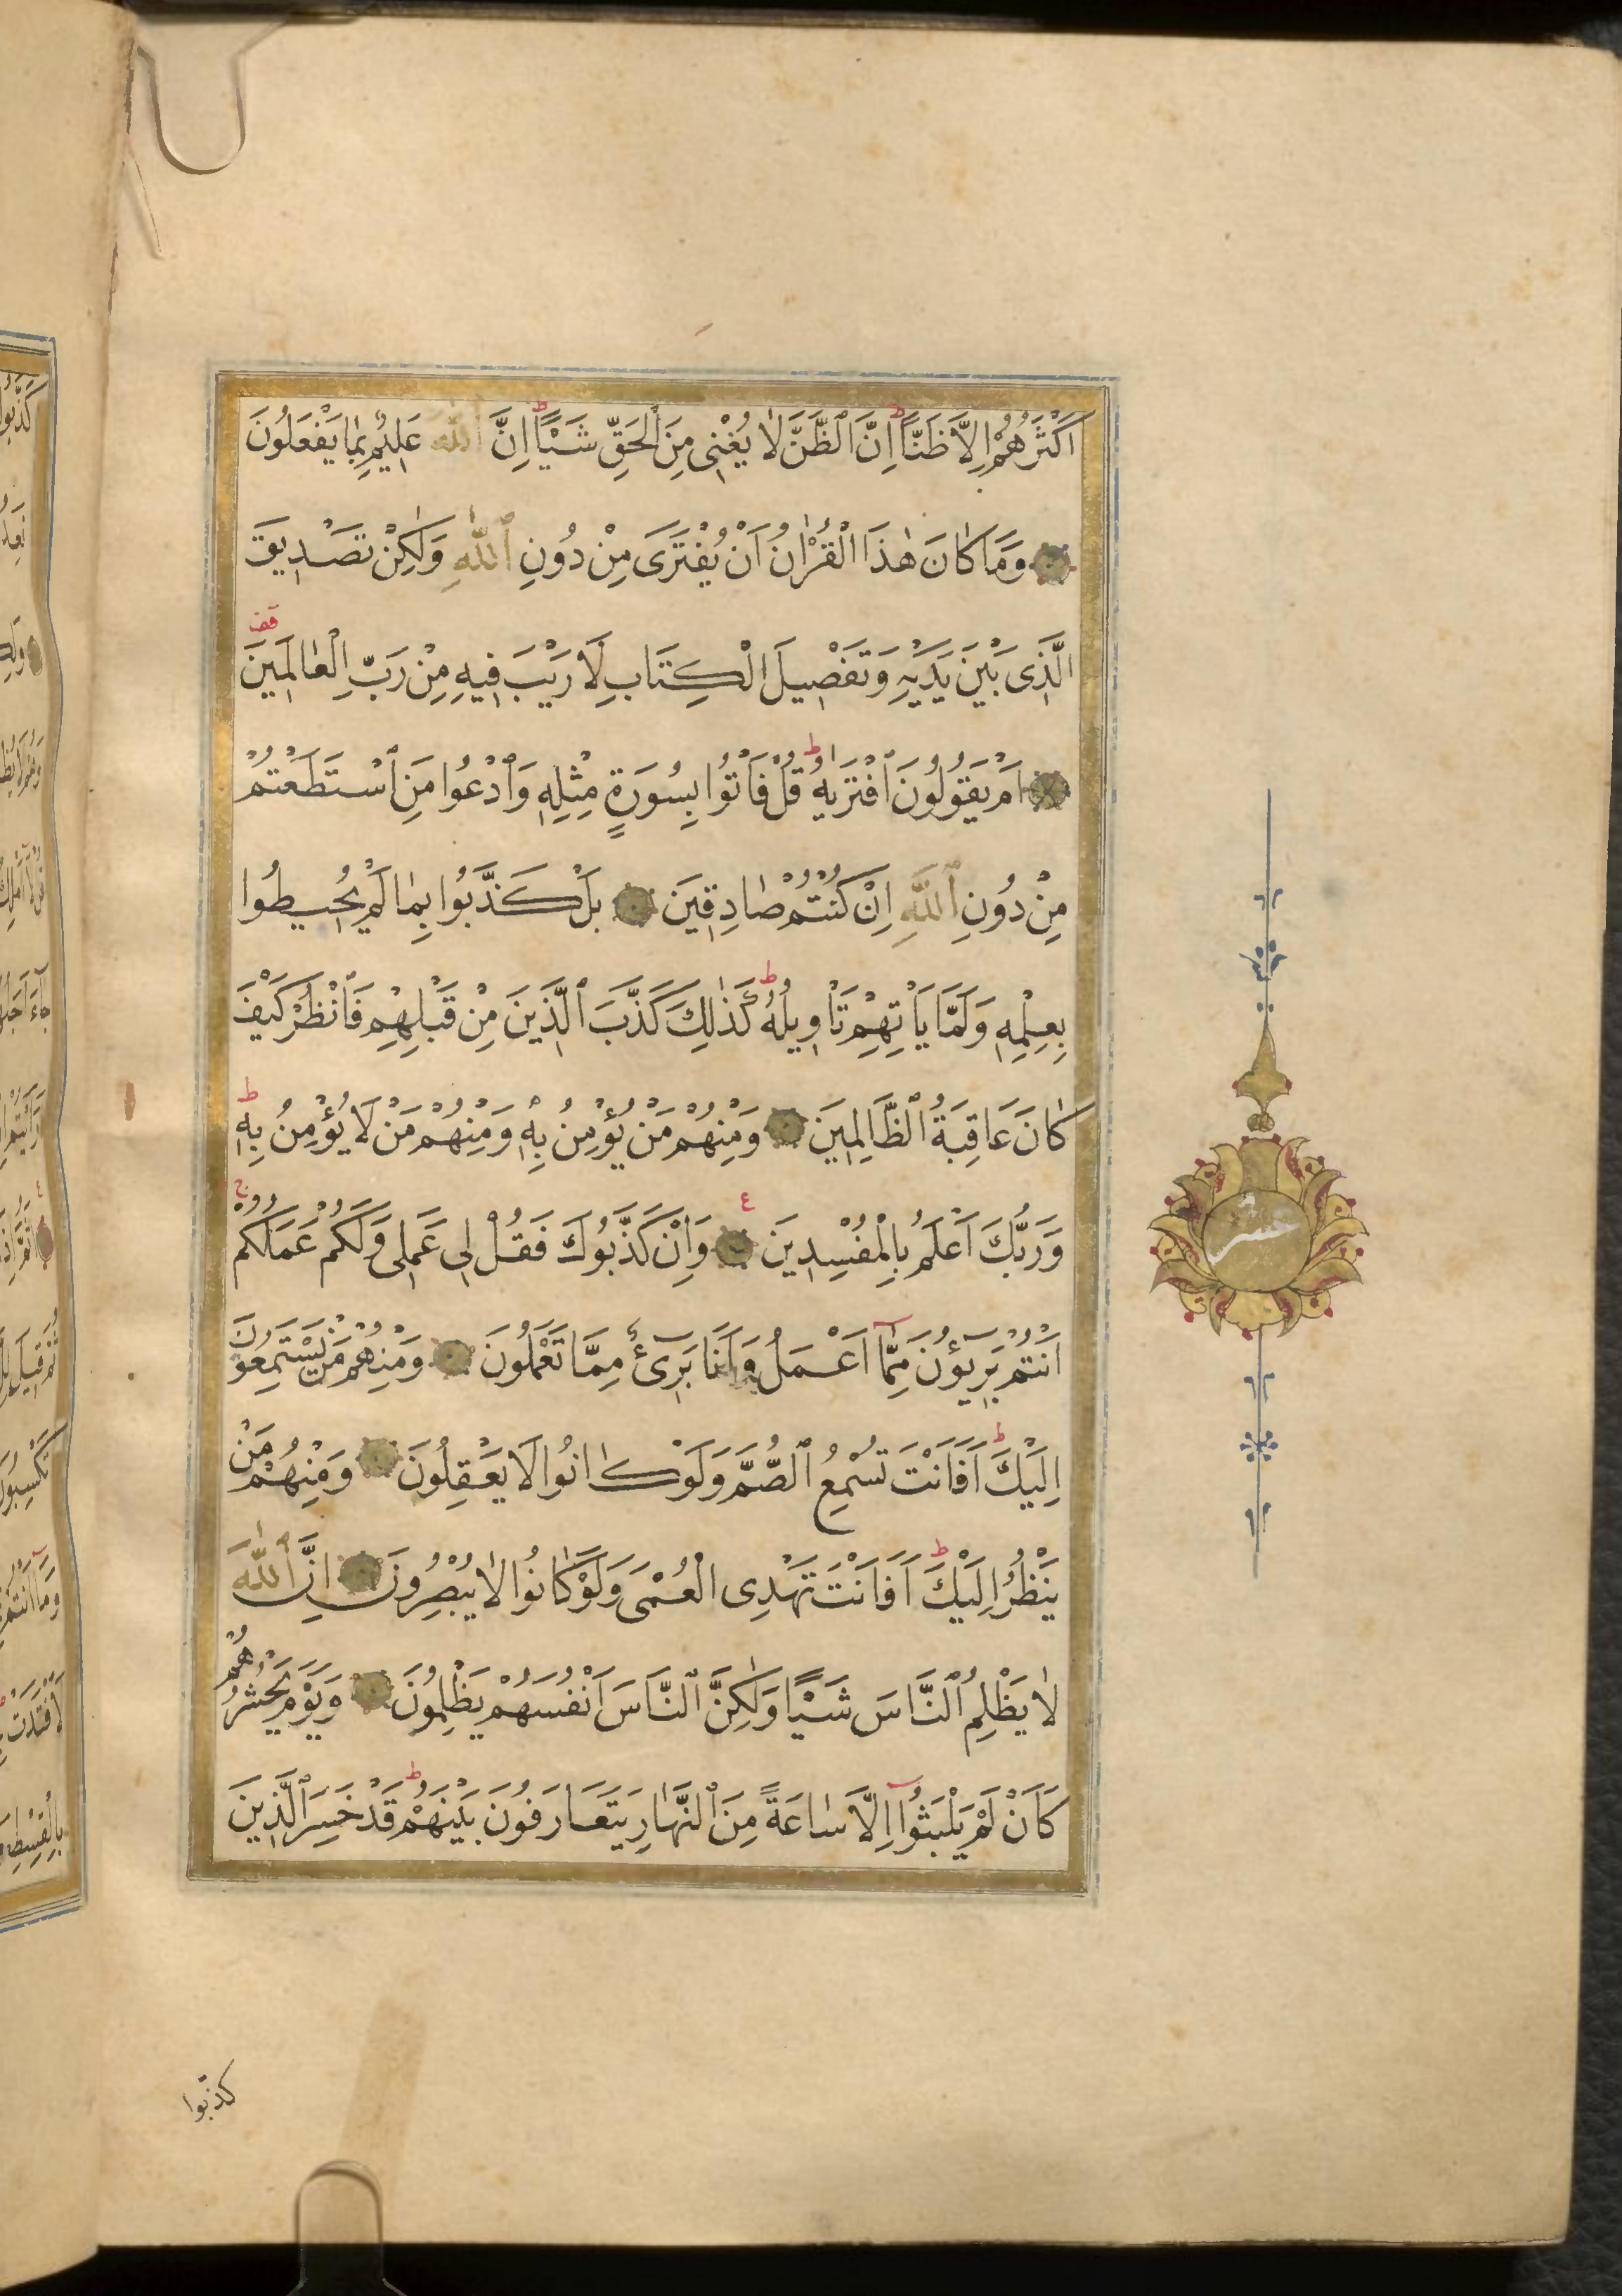 اَكْثَرُهُمْ اِلَّا ظَنًّا اِنَّ ٱلظَّنَّ لَا يُغْنِى مِنَ ٱلْحَقِّ شَيْـًٔا اِنَّ ٱللّٰهَ عَلِيمٌ بِمَا يَفْعَلُونَ
وَمَا كَانَ هٰذَا الْقُرْاٰنُ اَنْ يُفْتَرَى مِنْ دُونِ ٱللّٰهِ وَلٰكِنْ تَصْدِيقَ
الَّذِى بَيْنَ يَدَيْهِ وَتَفْصِيلَ الْكِتَابِ لَا رَيْبَ فِيهِ مِنْ رَبِّ الْعَالَمِينَ
اَمْ يَقُولُونَ ٱفْتَرٰيهُ قُلْ فَاْتُوا بِسُورَةٍ مِثْلِهِ وَٱدْعُوا مَنِ ٱسْتَطَعْتُمْ
مِنْ دُونِ ٱللّٰهِ اِنْ كُنْتُمْ صَادِقِينَ بَلْ كَذَّبُوا بِمَا لَمْ يُحِيطُوا
بِعِلْمِهِ وَلَمَّا يَاْتِهِمْ تَاْوِيلُهُ كَذٰلِكَ كَذَّبَ ٱلَّذِينَ مِنْ قَبْلِهِمْ فَٱنْظُرْ كَيْفَ
كَانَ عَاقِبَةُ ٱلظَّالِمِينَ وَمِنْهُمْ مَنْ يُؤْمِنُ بِهِ وَمِنْهُمْ مَنْ لَا يُؤْمِنُ بِهِ
وَرَبُّكَ اَعْلَمُ بِالْمُفْسِدِينَ وَاِنْ كَذَّبُوكَ فَقُلْ لِى عَمَلِى وَلَكُمْ عَمَلُكُمْ
اَنْتُمْ بَرِيؤُنَ مِمَّا اَعْمَلُ وَاَنَا بَرِىٓءٌ مِمَّا تَعْمَلُونَ وَمِنْهُمْ مَنْ يَسْتَمِعُونَ
اِلَيْكَ اَفَاَنْتَ تُسْمِعُ ٱلصُّمَّ وَلَوْ كَانُوا لَا يَعْقِلُونَ وَمِنْهُمْ مَنْ
يَنْظُرُ اِلَيْكَ اَفَاَنْتَ تَهْدِى الْعُمْىَ وَلَوْ كَانُوا لَا يُبْصِرُونَ اِنَّ ٱللّٰهَ
لَا يَظْلِمُ ٱلنَّاسَ شَيْـًٔا وَلٰكِنَّ ٱلنَّاسَ اَنْفُسَهُمْ يَظْلِمُونَ وَيَوْمَ يَحْشُرُهُمْ
كَاَنْ لَمْ يَلْبَثُوا اِلَّا سَاعَةً مِنَ ٱلنَّهَارِ يَتَعَارَفُونَ بَيْنَهُمْ قَدْ خَسِرَ ٱلَّذِينَ
كذّبوا